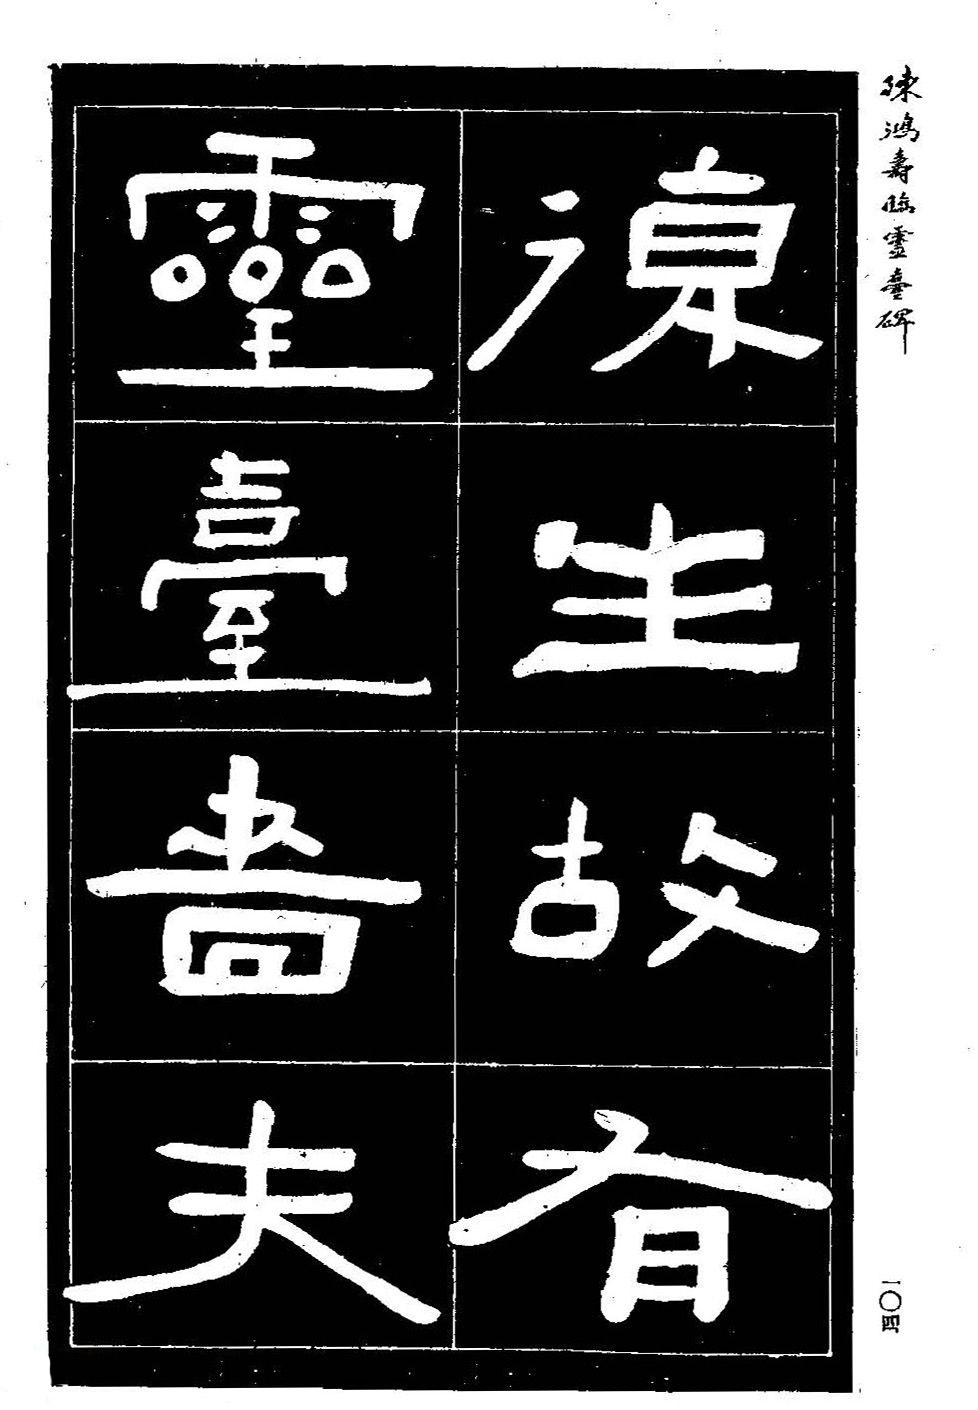 陳鴻壽臨靈臺碑
復生故有
靈臺嗇夫
一〇四